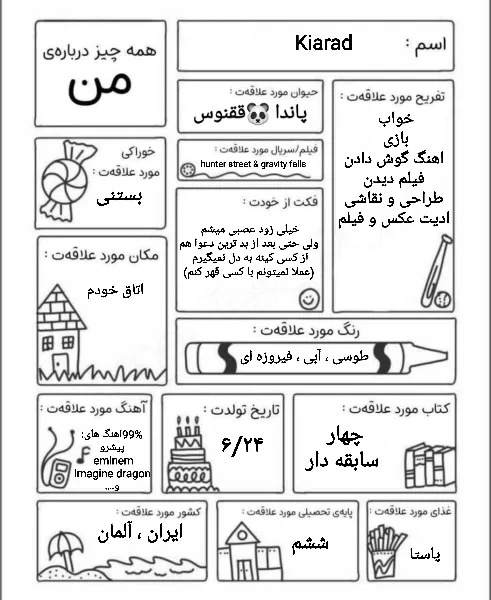 همه چیز درباره‌ی
من
اسم :
Kiarad
حیوان مورد علاقه‌ت :
پاندا 🐼 ققنوس
تفریح مورد علاقه‌ت :
خواب
بازی
اهنگ گوش دادن
فیلم دیدن
طراحی و نقاشی
ادیت عکس و فیلم
خوراکی
مورد علاقه‌ت :
بستنی
فیلم/سریال مورد علاقه‌ت :
hunter street & gravity falls
فکت از خودت :
خیلی زود عصبی میشم
ولی حتی بعد از بد ترین دعوا هم
از کسی کینه به دل نمیگیرم
(عملا نمیتونم با کسی قهر کنم)
مکان مورد علاقه‌ت :
اتاق خودم
رنگ مورد علاقه‌ت :
طوسی ، آبی ، فیروزه ای
آهنگ مورد علاقه‌ت :
99%اهنگ های:
پیشرو
eminem
Imagine dragon
و....
تاریخ تولدت :
۶/۲۴
کتاب مورد علاقه‌ت :
چهار
سابقه دار
کشور مورد علاقه‌ت :
ایران ، آلمان
پایه‌ی تحصیلی مورد علاقه‌ت :
ششم
غذای مورد علاقه‌ت :
پاستا